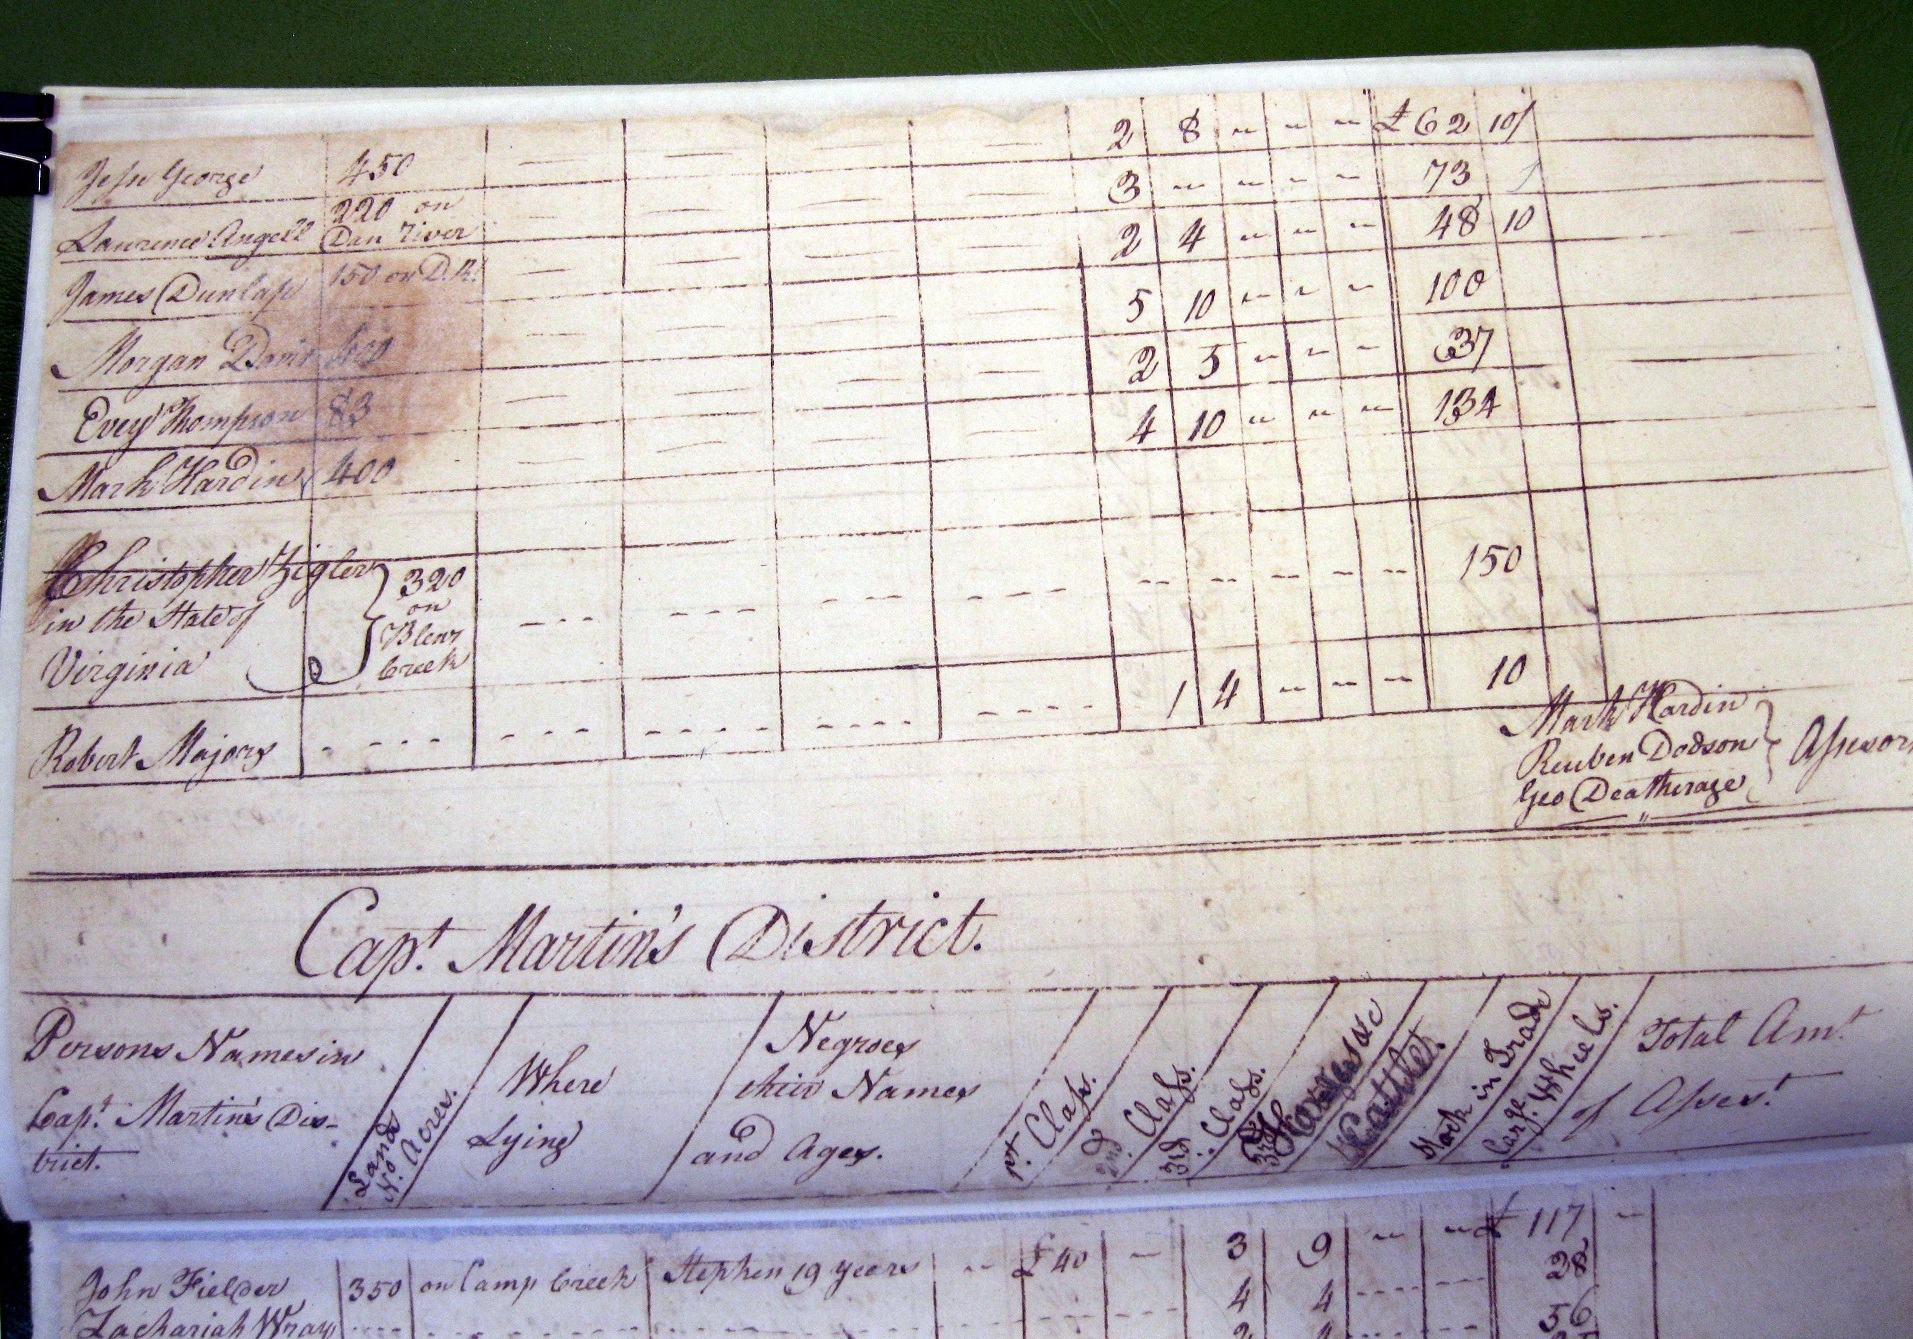 Jesse George 450 2 8 " " " £62 10/
Laurence Angell 220 on Dan River 3 " " " " 73
James Dunlap 150 on D. R. 2 4 " " " 48 10
Morgan Davis 400 5 10 " " " 100
Evey Thompson 83 2 5 " " " 37
Mark Hardin 400 4 10 " " " 134
Christopher Zigler
in the State of
Virginia
320
on
Blews
Creek
150
Robert Majors 1 4 " " " 10
Mark Hardin
Reuben Dodson
Geo Deatherage
Assesors
Capt. Martin's District.
Persons Names in
Capt. Martin's Dis-
trict.
Lands
No. Acres.
Where
Lying
Negroes
their Names
and Ages.
1st. Class.
2nd. Class.
3rd. Class.
Horses &c
Cattle.
Stock in Trade
Carge. Wheels.
Total Amt.
of Assest.
John Fielder 350 on Camp Creek Stephen 19 years " £40 - 3 9 " " £117 -
Zachariah Wray 4 4 38
2 4 56